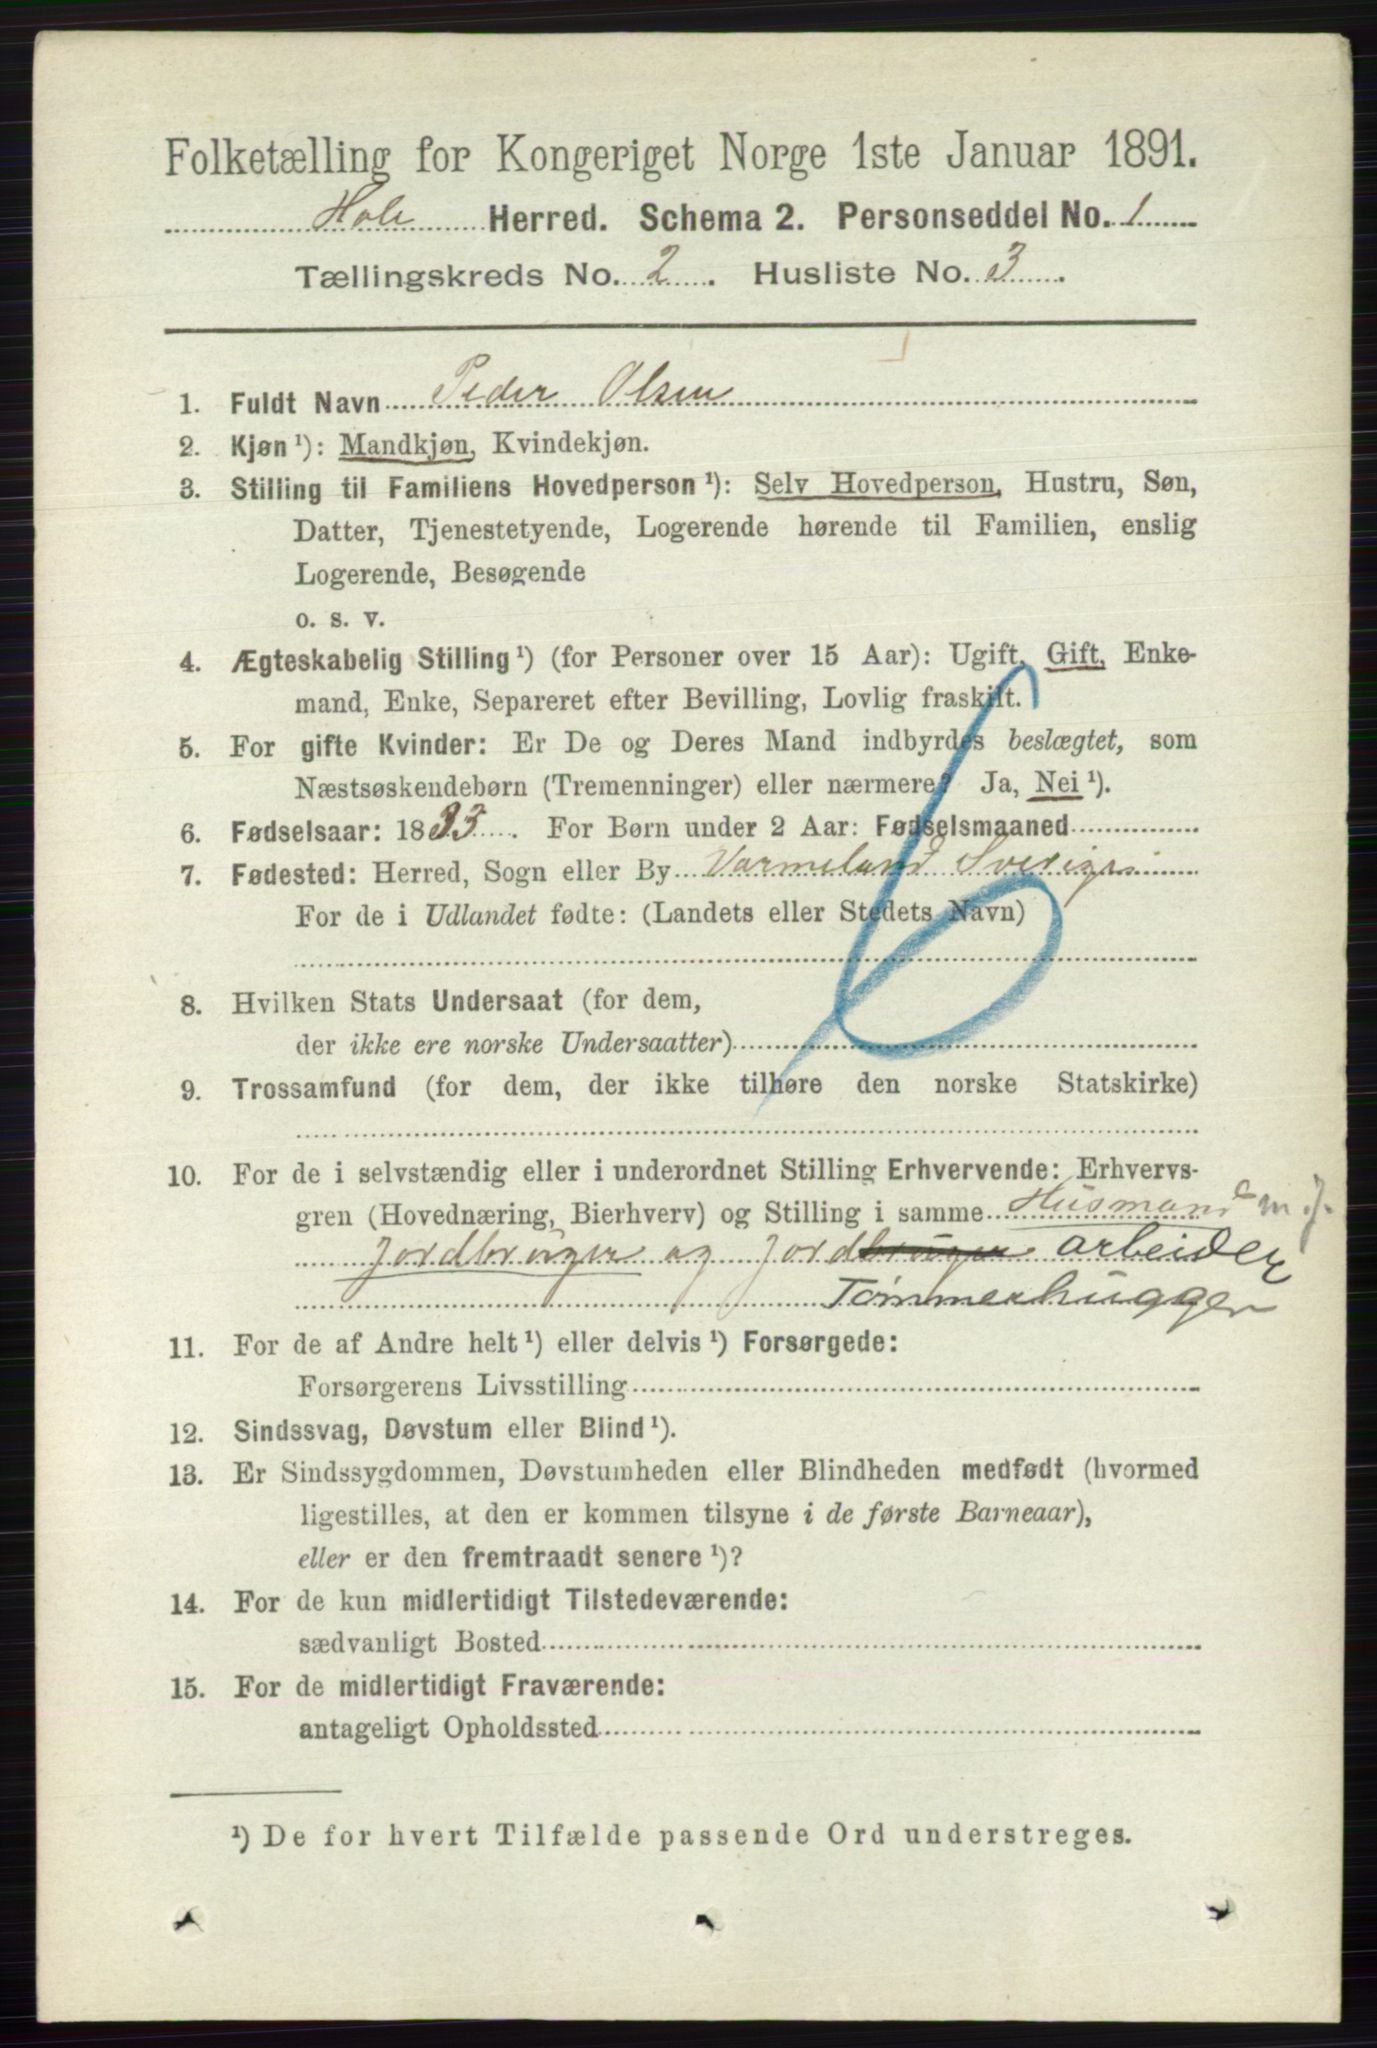 Folketælling for Kongeriget Norge 1ste Januar 1891.
Hole Herred. Schema 2. Personseddel No. 1
Tællingskreds No. 2. Husliste No. 3.
1. Fuldt Navn Peder Olsen
2. Kjøn ¹): Mandkjøn, Kvindekjøn.
3. Stilling til Familiens Hovedperson ¹): Selv Hovedperson, Hustru, Søn,
Datter, Tjenestetyende, Logerende hørende til Familien, enslig
Logerende, Besøgende
o. s. v.
4. Ægteskabelig Stilling ¹) (for Personer over 15 Aar): Ugift, Gift, Enke-
mand, Enke, Separeret efter Bevilling, Lovlig fraskilt.
5. For gifte Kvinder: Er De og Deres Mand indbyrdes beslægtet, som
Næstsøskendebørn (Tremenninger) eller nærmere? Ja, Nei ¹).
6. Fødselsaar: 1835. For Børn under 2 Aar: Fødselsmaaned
7. Fødested: Herred, Sogn eller By Varmeland Sverige
For de i Udlandet fødte: (Landets eller Stedets Navn)
8. Hvilken Stats Undersaat (for dem,
der ikke ere norske Undersaatter)
9. Trossamfund (for dem, der ikke tilhøre den norske Statskirke)
10. For de i selvstændig eller i underordnet Stilling Erhvervende: Erhvervs-
gren (Hovednæring, Bierhverv) og Stilling i samme Husmand m. J.
Jordbruger og Jordbruger arbeider
Tømmerhugger
11. For de af Andre helt ¹) eller delvis ¹) Forsørgede:
Forsørgerens Livsstilling
12. Sindssvag, Døvstum eller Blind ¹).
13. Er Sindssygdommen, Døvstumheden eller Blindheden medfødt (hvormed
ligestilles, at den er kommen tilsyne i de første Barneaar),
eller er den fremtraadt senere ¹)?
14. For de kun midlertidigt Tilstedeværende:
sædvanligt Bosted
15. For de midlertidigt Fraværende:
antageligt Opholdssted
¹) De for hvert Tilfælde passende Ord understreges.